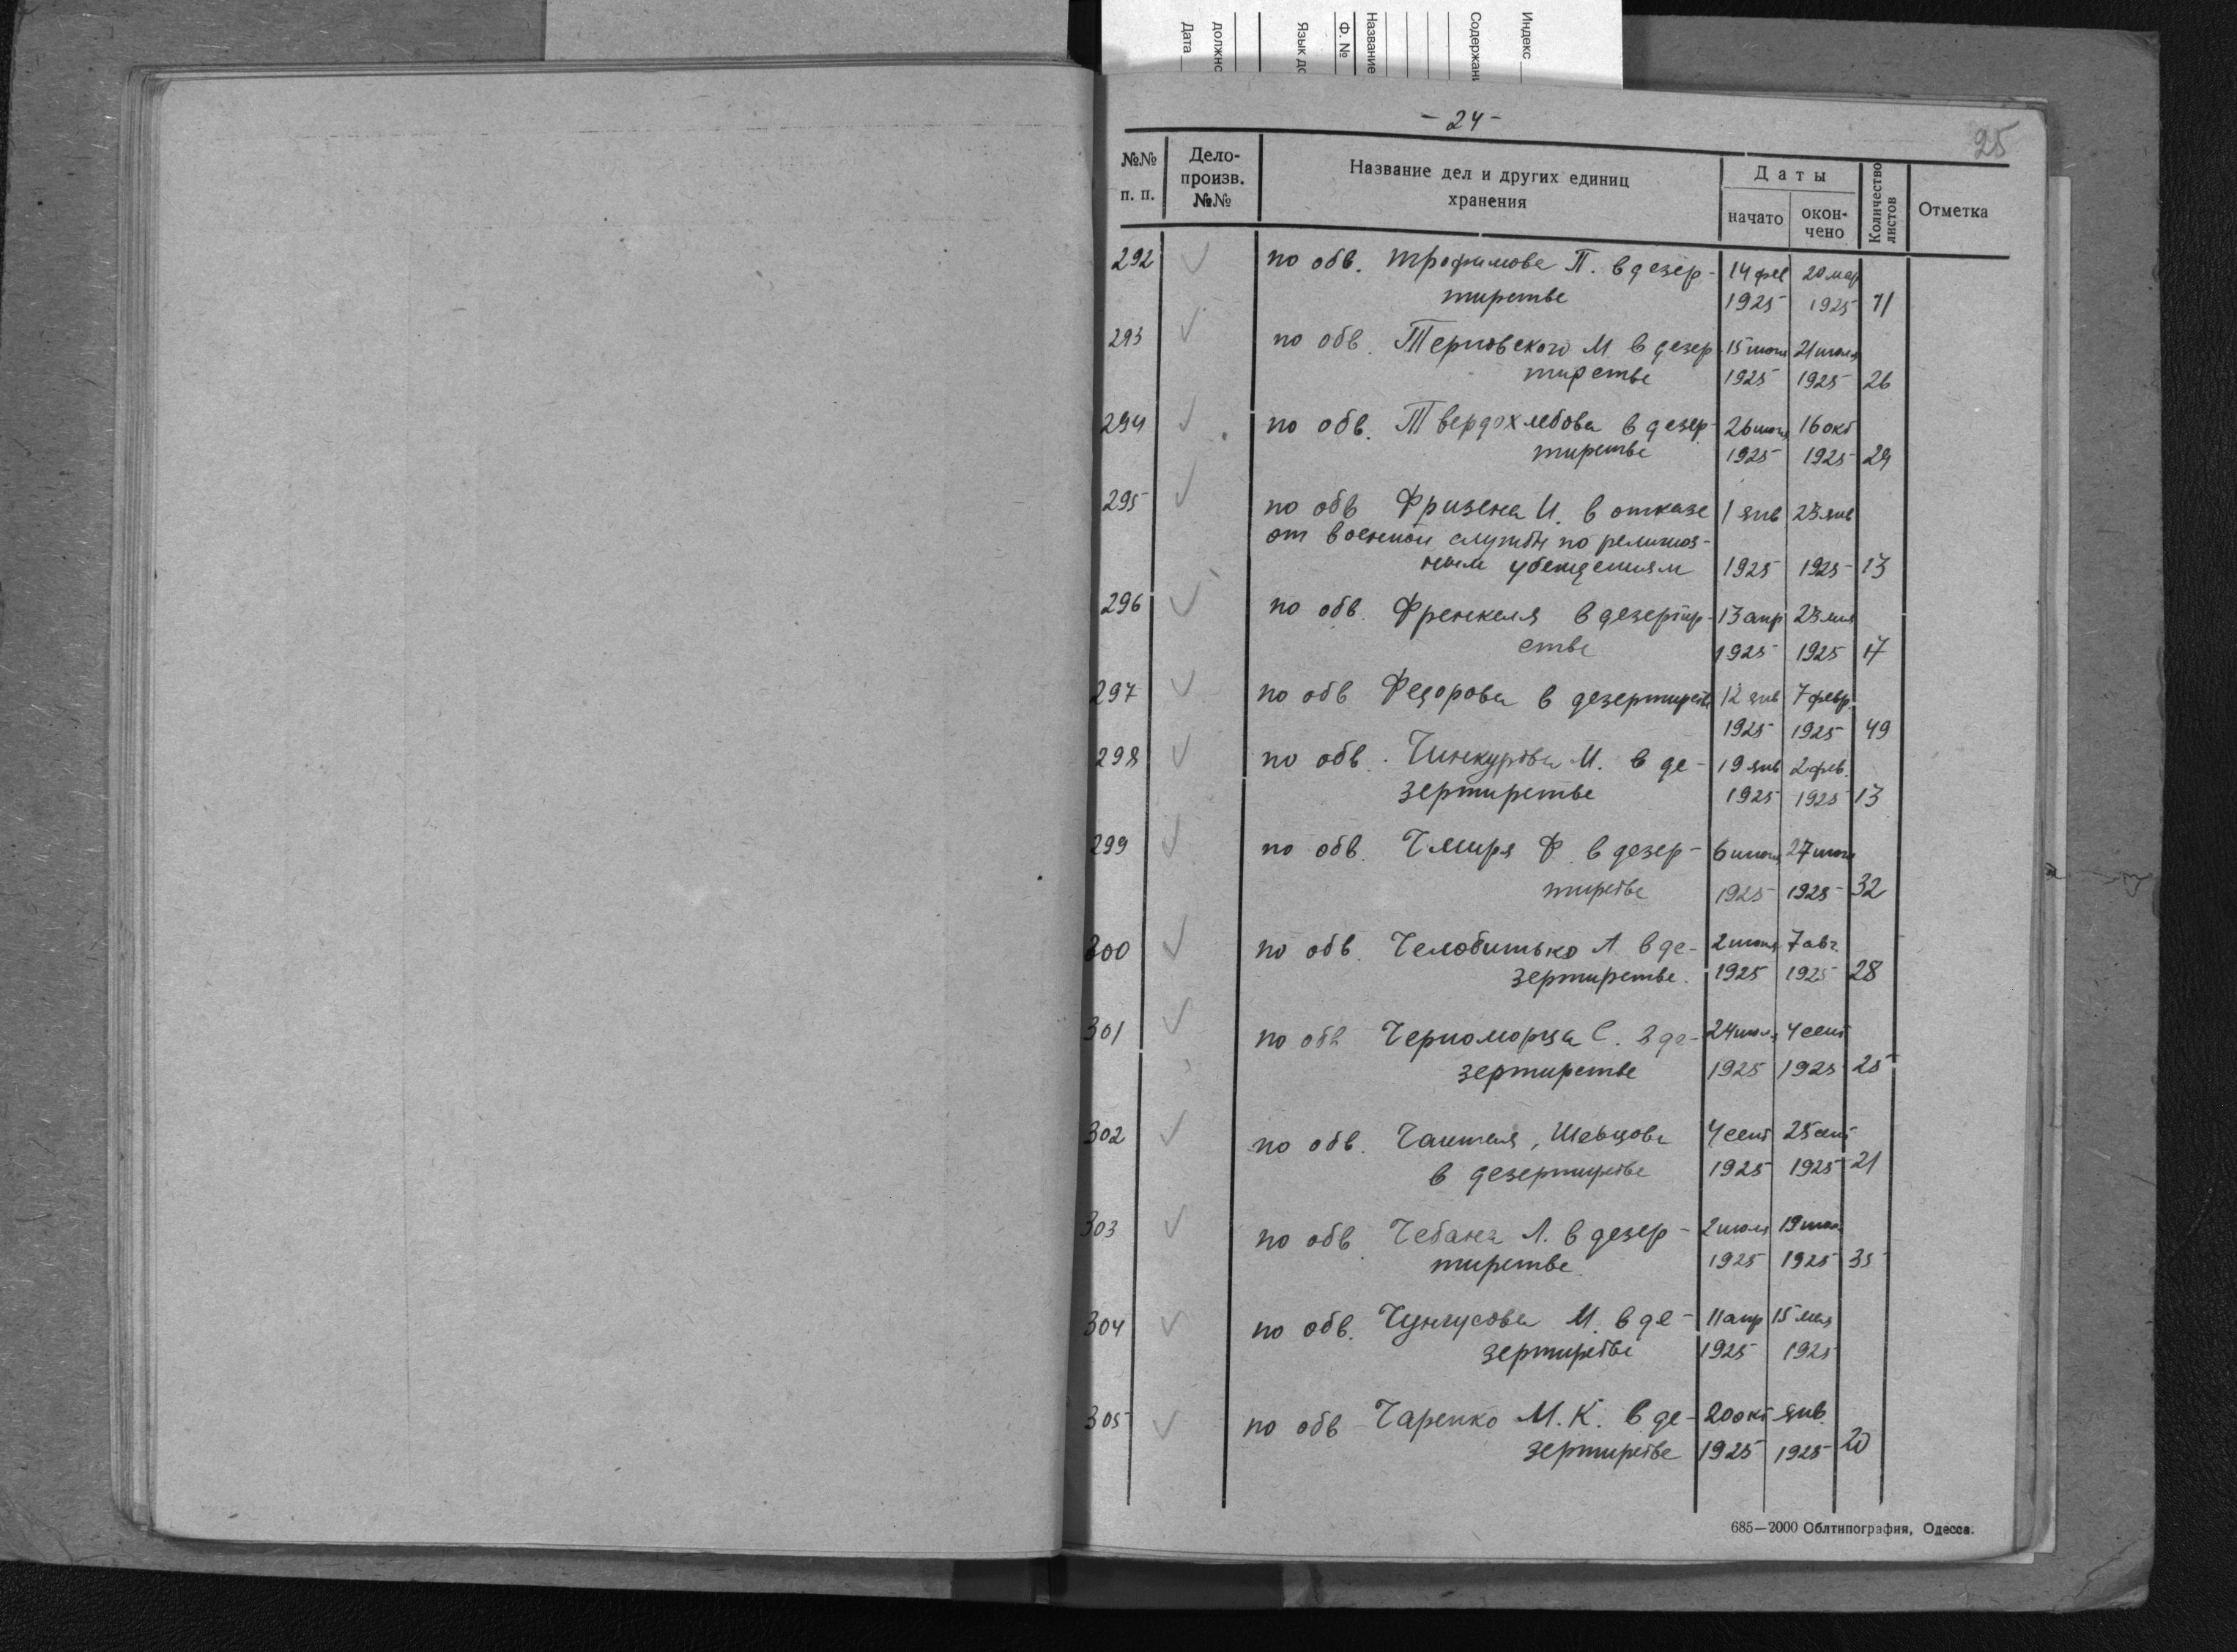 Индекс
Содержани
Название
Ф. №
Язык до
должно
Дата
- 24 -
25
№№ п. п.
Дело-произв. №№
Название дел и других единиц хранения
Даты
начато
окон-чено
Количество листов
Отметка
292 ✓ по обв. Трофимова П. в дезер- 14 фев 20 мар
тирстве 1925 1925 71
293 ✓ по обв. Терновского М в дезер 15 июня 21 июля
тирстве 1925 1925 26
294 ✓ по обв. Твердохлебова в дезер- 16 окт
тирстве 1925 1925 29
295 ✓ по обв Фризена И. в отказе 1 янв 23 янв
от военной службы по религиоз-
ным убеждениям 1925 1925 13
296 ✓ по обв. Френкеля в дезертир- 13 апр 23 мая
стве 1925 1925 17
297 ✓ по обв Федорова в дезертирстве 12 янв 7 февр.
1925 1925 49
298 ✓ по обв. Чинкурова И. в де- 19 янв 2 фев.
зертирстве 1925 1925 13
299 ✓ по обв. Чмиря Ф. в дезер-
тирстве 1925 1925 32
300 ✓ по обв. Челобитько Л в де- 7 авг.
зертирстве. 1925 1925 28
301 ✓ по обв Черноморца С. в де- 4 сент
зертирстве 1925 1925 25
302 ✓ по обв. Шевцова 4 сент 25 сент
в дезертирстве 1925 1925 21
303 ✓ по обв Чебана Л. в дезер-
тирстве. 1925 1925 35
304 ✓ по обв. М. в де- 11 апр 15 мая
зертирстве 1925 1925
305 ✓ по обв Чаренко М. К. в де- 20 окт янв.
зертирстве 1925 1925 20
685—2000 Облтипография, Одесса.